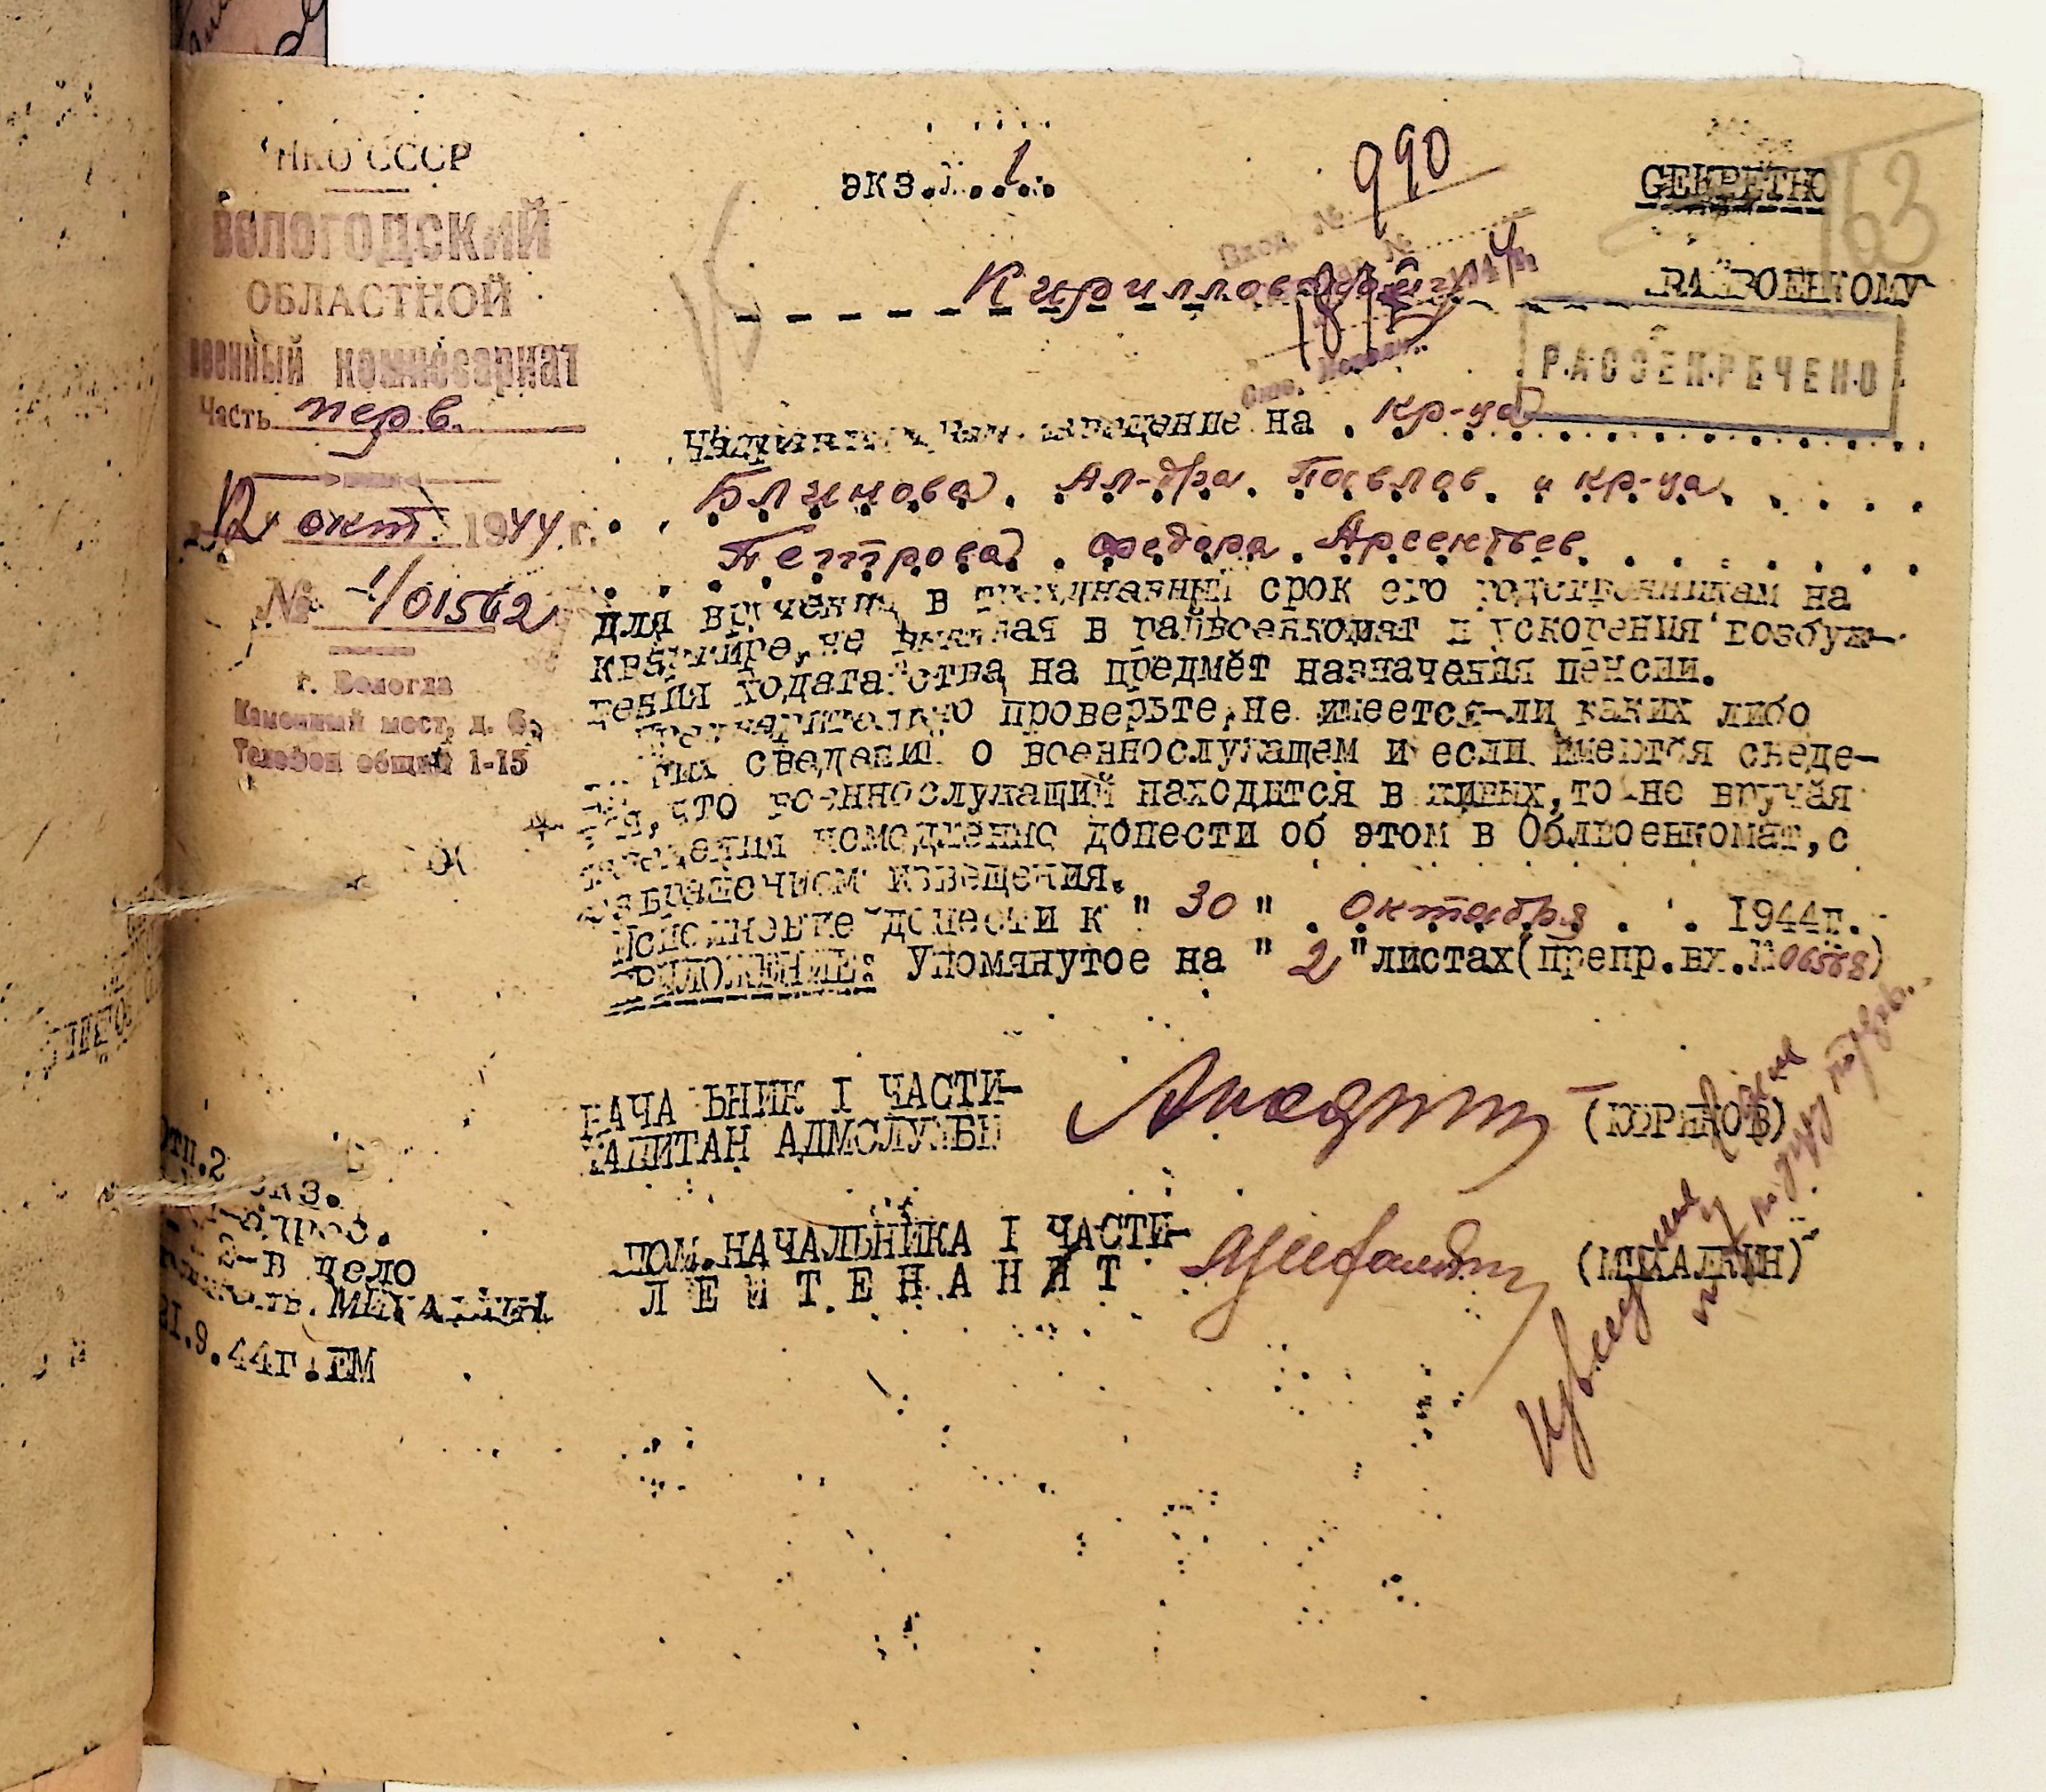 НКО СССР
ВОЛОГОДСКИЙ
ОБЛАСТНОЙ
военный комиссариат
Часть перв.
12 окт. 1944 г.
№ 1/01562
г. Вологда
Каменный мост, д. 6,
Телефон общий 1-15
экз.№ 1
990
Вход. №
СЕКРЕТНО
163
Кирилловскому РАЙВОЕНКОМУ
РАССЕКРЕЧЕНО
извещение на кр-ца
Блинова Ал-дра Павлов. и кр-ца
Петрова Федора Арсентьев
для вручения в срок его родственникам на
квартире, не вызывая в райвоенкомат и ускорения возбуж-
дения ходатайства на предмет назначения пенсии.
Предварительно проверьте, не имеется-ли каких либо
сведений о военнослужащем и если имеются сведе-
ния, что военнослужащий находится в живых, то не вручая
извещения немедленно донести об этом в Облвоенкомат, с
возвращением извещения.
Исполнение донести к "30" октября 1944г.
ПРИЛОЖЕНИЕ: Упомянутое на "2" листах(препр.вх.№06568)
НАЧАЛЬНИК I ЧАСТИ-
КАПИТАН АДМСЛУЖБЫ (КОРЯКОВ)
ПОМ.НАЧАЛЬНИКА I ЧАСТИ-
ЛЕЙТЕНАНТ (МИКАЛКИН)
отп.2 экз.
1-адрес.
2-в дело
9.44г.ЕМ